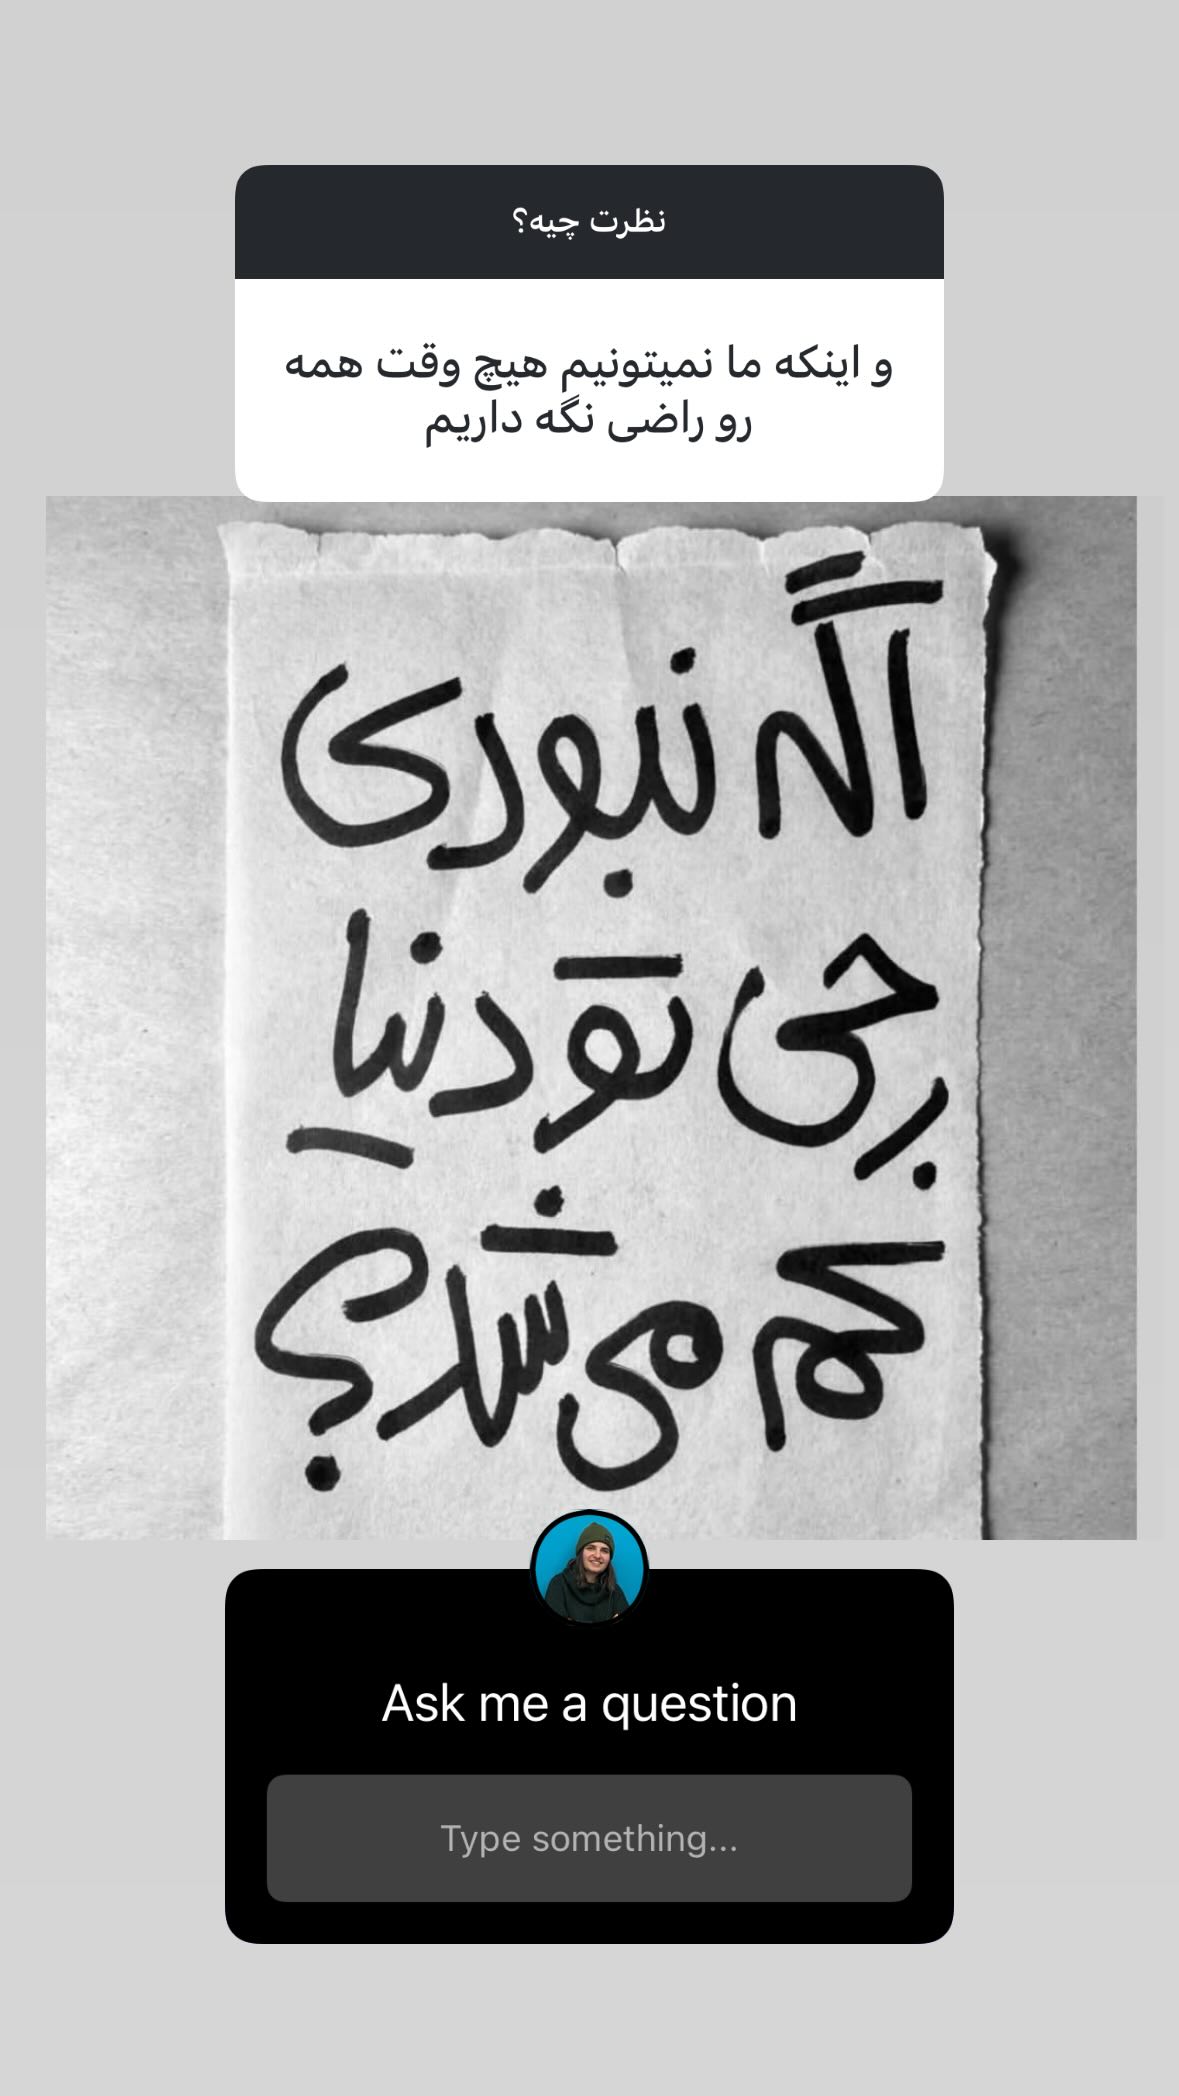 نظرت چیه؟
و اینکه ما نمیتونیم هیچ وقت همه
رو راضی نگه داریم
اگه نبودی
چی تو دنیا
کم می شد؟
Ask me a question
Type something...